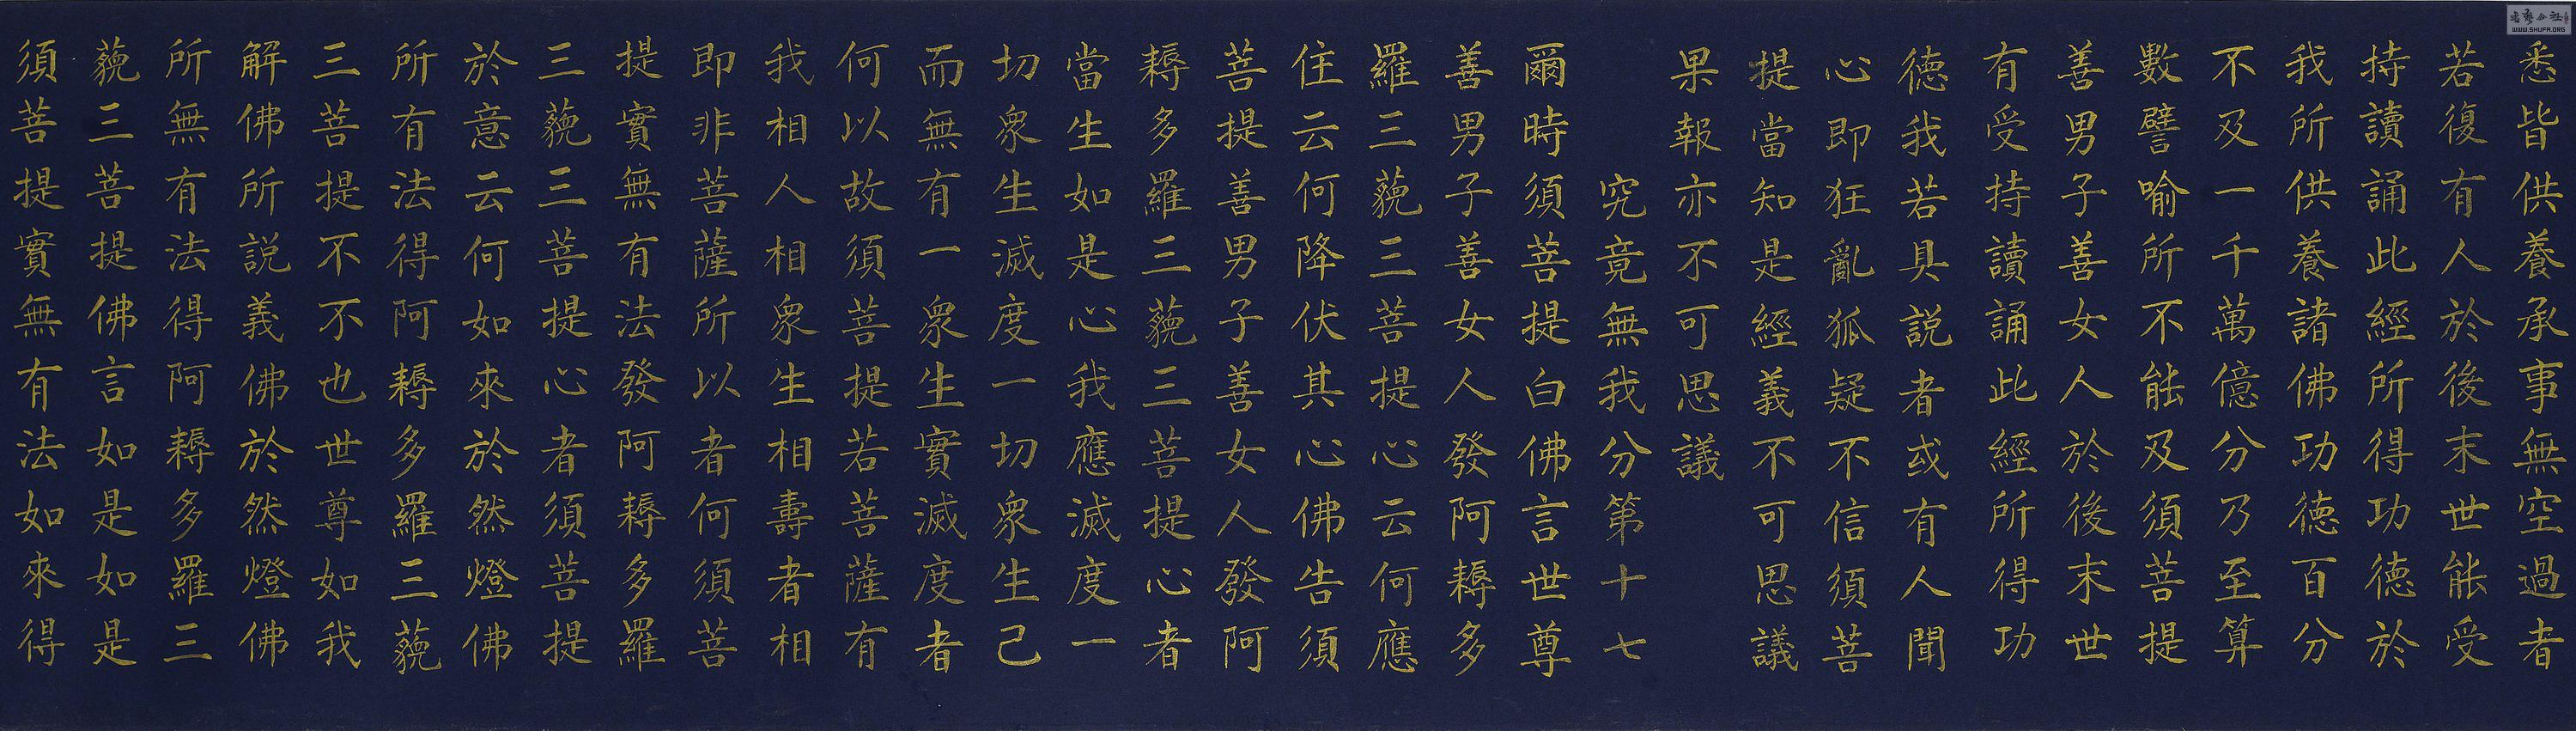 悉皆供養承事無空過者
若復有人於後末世能受
持讀誦此經所得功德於
我所供養諸佛功德百分
不及一千萬億分乃至算
數譬喻所不能及須菩提
善男子善女人於後末世
有受持讀誦此經所得功
德我若具說者或有人聞
心即狂亂狐疑不信須菩
提當知是經義不可思議
果報亦不可思議
究竟無我分第十七
爾時須菩提白佛言世尊
善男子善女人發阿耨多
羅三藐三菩提心云何應
住云何降伏其心佛告須
菩提善男子善女人發阿
耨多羅三藐三菩提心者
當生如是心我應滅度一
切眾生滅度一切眾生已
而無有一眾生實滅度者
何以故須菩提若菩薩有
我相人相眾生相壽者相
即非菩薩所以者何須菩
提實無有法發阿耨多羅
三藐三菩提心者須菩提
於意云何如來於然燈佛
所有法得阿耨多羅三藐
三菩提不不也世尊如我
解佛所說義佛於然燈佛
所無有法得阿耨多羅三
藐三菩提佛言如是如是
須菩提實無有法如來得
WWW.SHUFA.ORG